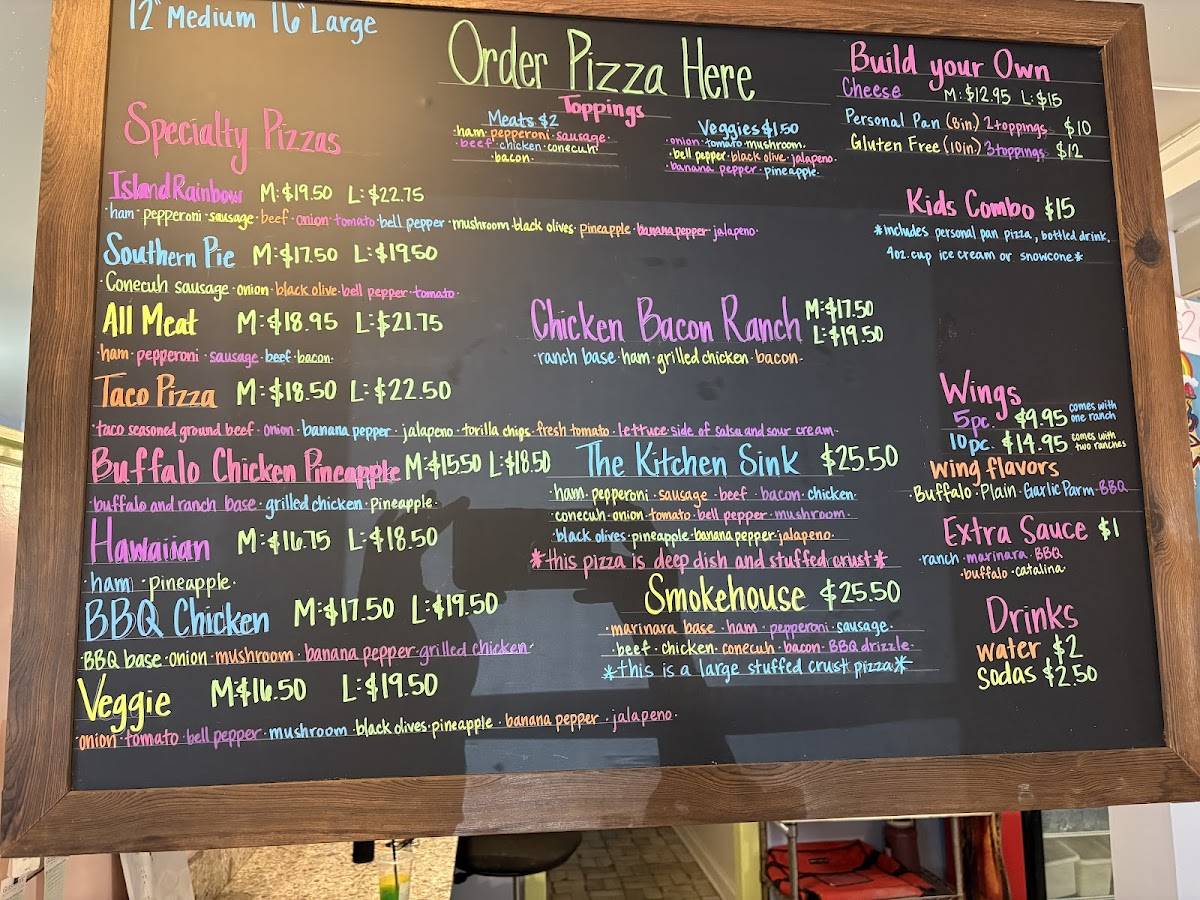 12" Medium 16" Large
Order Pizza Here
Toppings
Meats $2
·ham·pepperoni·sausage·
·beef·chicken·conecuh·
·bacon·
Veggies $1.50
·onion·tomato·mushroom·
·bell pepper·black olive·jalapeno·
·banana pepper·pineapple·
Build your Own
Cheese M:$12.95 L:$15
Personal Pan (8in.) 2 toppings $10
Gluten Free (10in.) 3 toppings $12
Kids Combo $15
*includes personal pan pizza, bottled drink,
4oz. cup ice cream or snowcone*
Specialty Pizzas
Island Rainbow M:$19.50 L:$22.75
·ham·pepperoni·sausage·beef·onion·tomato·bell pepper·mushroom·black olives·pineapple·banana pepper·jalapeno·
Southern Pie M:$17.50 L:$19.50
·Conecuh sausage·onion·black olive·bell pepper·tomato·
All Meat M:$18.95 L:$21.75
·ham·pepperoni·sausage·beef·bacon·
Taco Pizza M:$18.50 L:$22.50
·taco seasoned ground beef·onion·banana pepper·jalapeno·torilla chips·fresh tomato·lettuce·side of salsa and sour cream·
Buffalo Chicken Pineapple M:$15.50 L:$18.50
·buffalo and ranch base·grilled chicken·pineapple·
Hawaiian M:$16.75 L:$18.50
·ham·pineapple·
BBQ Chicken M:$17.50 L:$19.50
·BBQ base·onion·mushroom·banana pepper·grilled chicken·
Veggie M:$16.50 L:$19.50
·onion·tomato·bell pepper·mushroom·black olives·pineapple·banana pepper·jalapeno·
Chicken Bacon Ranch M:$17.50
L:$19.50
·ranch base·ham·grilled chicken·bacon·
The Kitchen Sink $25.50
·ham·pepperoni·sausage·beef·bacon·chicken·
·conecuh·onion·tomato·bell pepper·mushroom·
·black olives·pineapple·banana pepper·jalapeno·
*this pizza is deep dish and stuffed crust*
Smokehouse $25.50
·marinara base·ham·pepperoni·sausage·
·beef·chicken·conecuh·bacon·BBQ drizzle·
*this is a large stuffed crust pizza*
Wings
5pc. $9.95 comes with
one ranch
10pc. $14.95 comes with
two ranches
wing flavors
·Buffalo·Plain·Garlic Parm·BBQ
Extra Sauce $1
·ranch·marinara·BBQ
·buffalo·catalina·
Drinks
water $2
Sodas $2.50